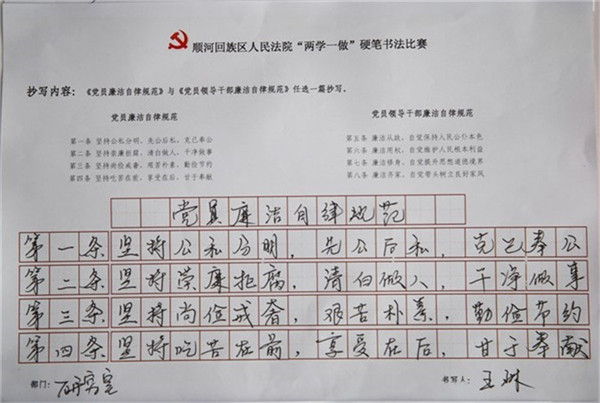 顺河回族区人民法院“两学一做”硬笔书法比赛
抄写内容：《党员廉洁自律规范》与《党员领导干部廉洁自律规范》任选一篇抄写。
党员廉洁自律规范
第一条 坚持公私分明，先公后私，克己奉公
第二条 坚持崇廉拒腐，清白做人，干净做事
第三条 坚持尚俭戒奢，艰苦朴素，勤俭节约
第四条 坚持吃苦在前，享受在后，甘于奉献
党员领导干部廉洁自律规范
第五条 廉洁从政，自觉保持人民公仆本色
第六条 廉洁用权，自觉维护人民根本利益
第七条 廉洁修身，自觉提升思想道德境界
第八条 廉洁齐家，自觉带头树立良好家风
党员廉洁自律规范
第一条坚持公私分明，先公后私，克己奉公
第二条坚持崇廉拒腐，清白做人，干净做事
第三条坚持尚俭戒奢，艰苦朴素，勤俭节约
第四条坚持吃苦在前，享受在后，甘于奉献
部门：研究室
书写人：王琳